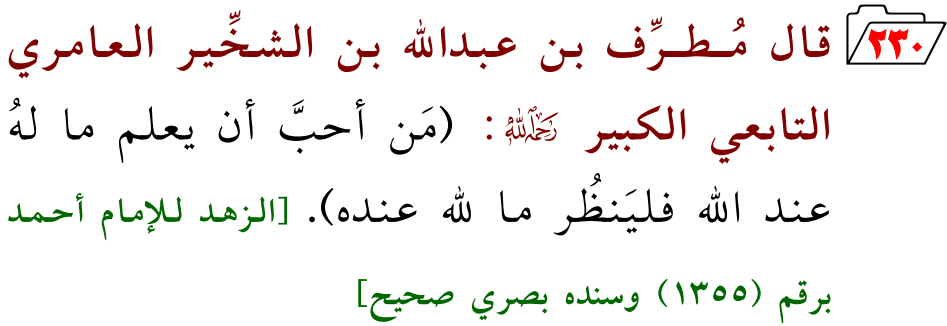 ٢٣٠ قال مُطرِّف بن عبدالله بن الشخِّير العامري
التابعي الكبير رحمه الله: (مَن أحبَّ أن يعلم ما لهُ
عند الله فليَنظُر ما لله عنده). [الزهد للإمام أحمد
برقم (١٣٥٥) وسنده بصري صحيح]